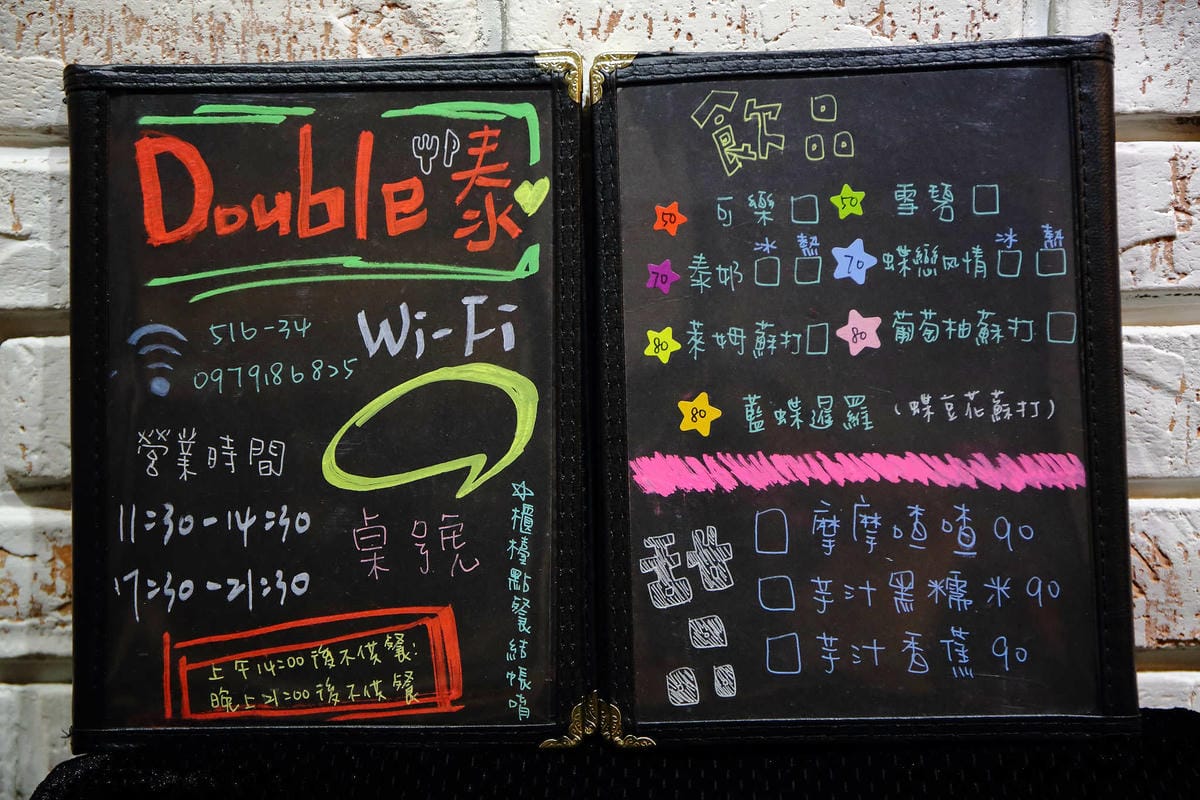 Double 泰
Wi-Fi
516-34
0979186825
營業時間
11:30-14:30
17:30-21:30
桌號
上午14:00後不供餐!
晚上21:00後不供餐
☆櫃檯點餐結帳唷
飲品
50 可樂□ 50 雪碧□
冰 熱 冰 熱
70 泰奶□ □ 70 蝶戀风情□ □
80 萊姆蘇打□ 80 葡萄柚蘇打□
80 藍蝶暹羅 (蝶豆花蘇打)
甜品
□ 摩摩喳喳 90
□ 芋汁黑糯米 90
□ 芋汁香蕉 90